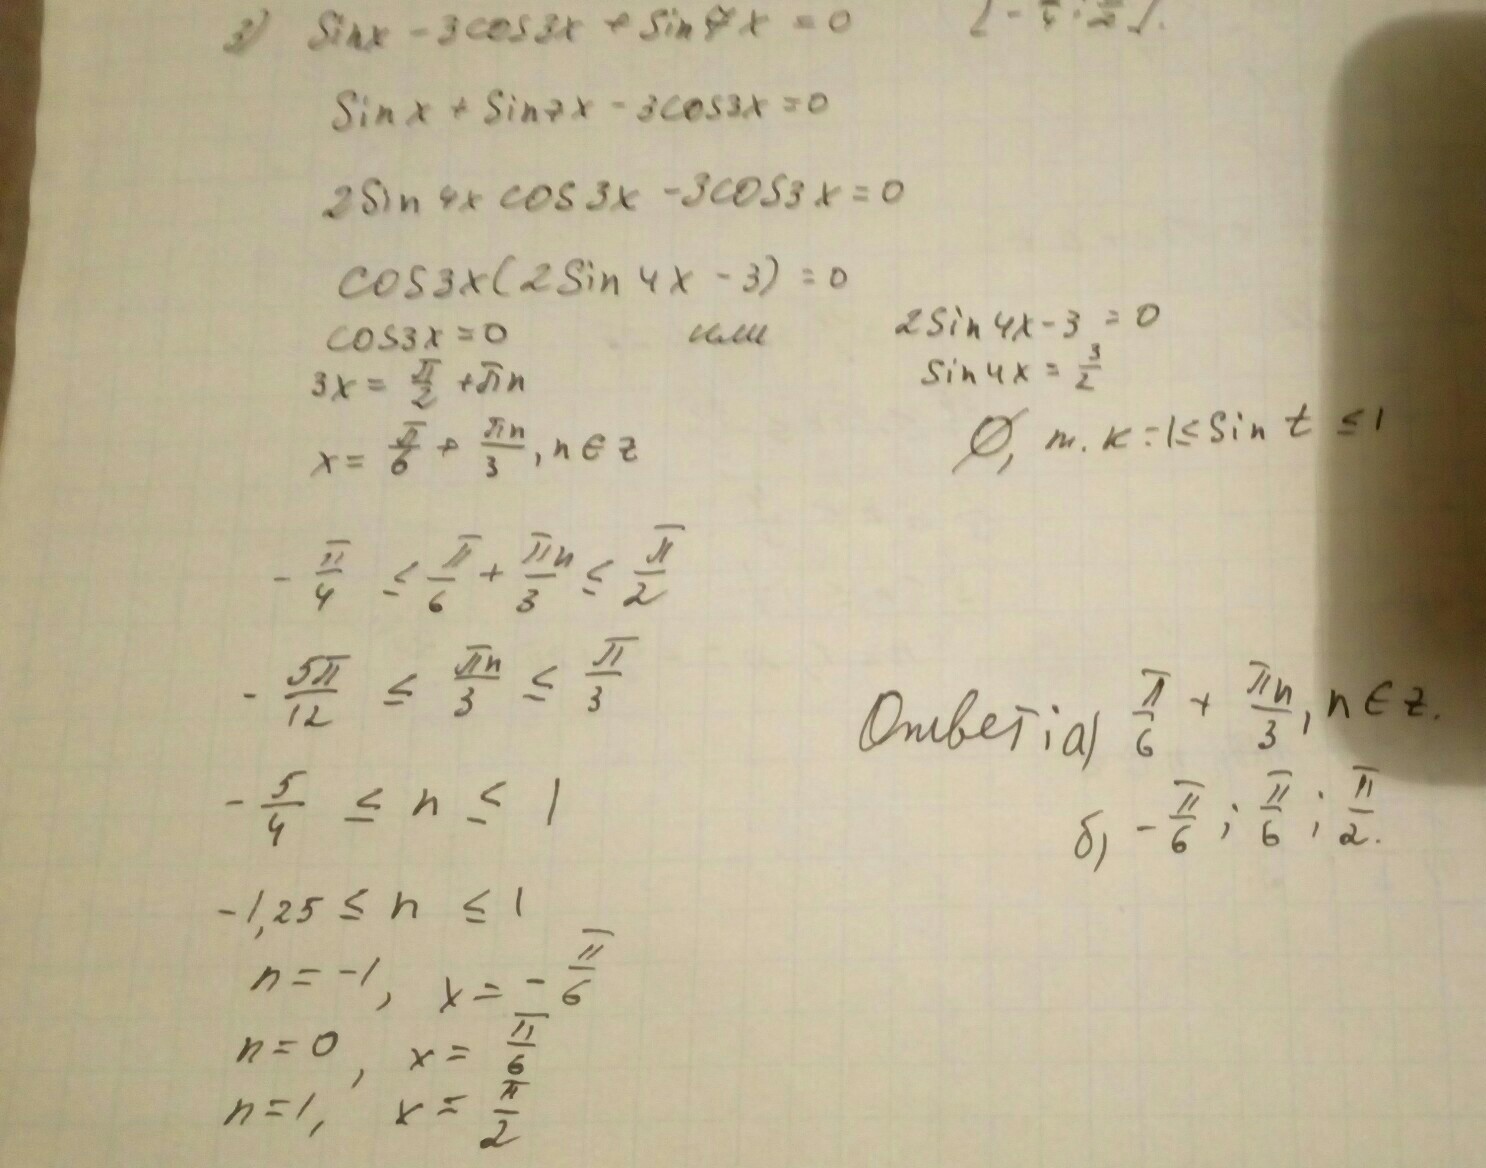 3) Sinx - 3cos3x + Sin7x = 0 [-π/4; π/2].
Sinx + Sin7x - 3cos3x = 0
2Sin4x cos3x - 3cos3x = 0
cos3x(2Sin4x - 3) = 0
cos3x = 0 или 2Sin4x - 3 = 0
3x = π/2 + πn Sin4x = 3/2
x = π/6 + πn/3, n ∈ z ∅, т.к -1 ≤ Sin t ≤ 1
-π/4 ≤ π/6 + πn/3 ≤ π/2
-5π/12 ≤ πn/3 ≤ π/3
Ответ: а) π/6 + πn/3, n ∈ z.
-5/4 ≤ n ≤ 1
б) -π/6; π/6; π/2.
-1,25 ≤ n ≤ 1
n = -1, x = -π/6
n = 0, x = π/6
n = 1, x = π/2